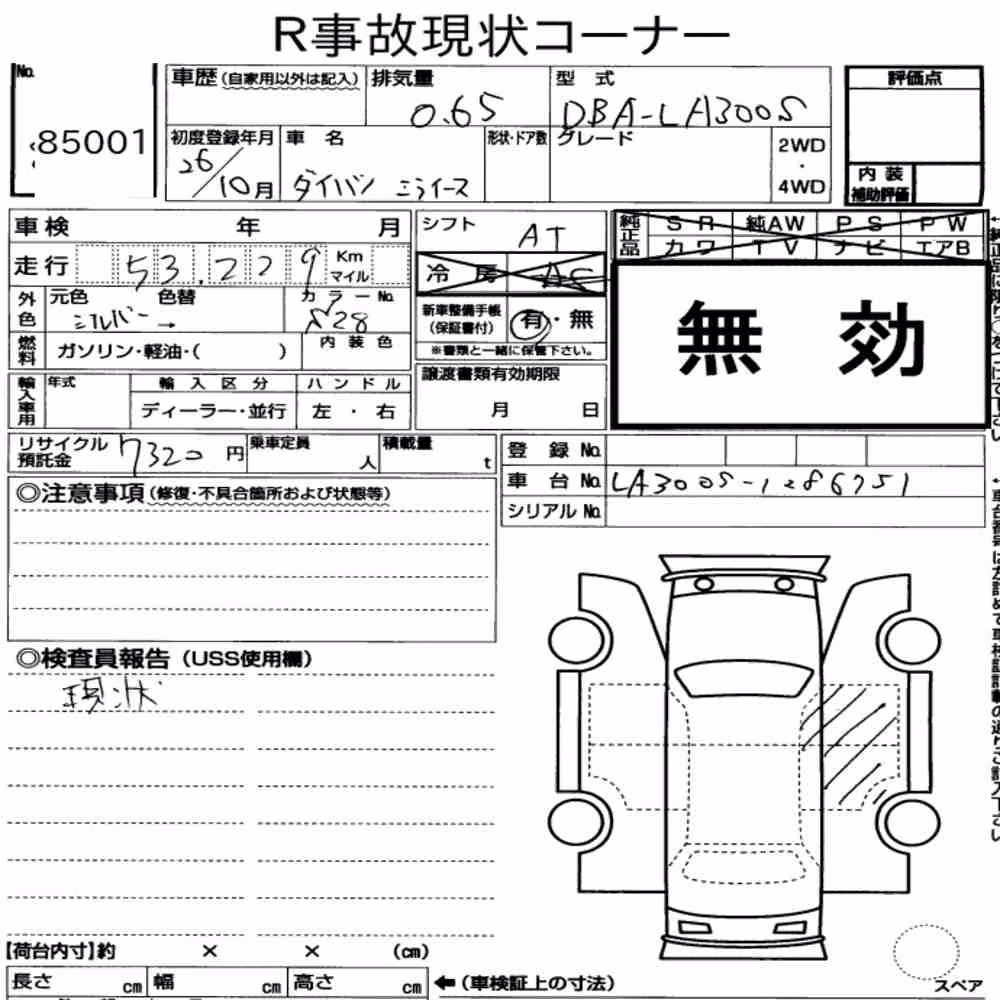 R事故現状コーナー
No.
85001
車歴(自家用以外は記入)
排気量
0.65
型式
DBA-LA300S
評価点
初度登録年月
26/10月
車名
ダイハツ ミライース
形状・ドア数
グレード
2WD
・
4WD
内装
補助評価
車検 年 月
走行 53,229 Km マイル
シフト
AT
冷房 AC
純正品
SR 純AW PS PW
カワ TV ナビ エアB
無効
外色
元色 色替
シルバー→
カラーNo.
S28
新車整備手帳
(保証書付)
有・無
※書類と一緒に保管下さい。
燃料
ガソリン・軽油・( )
内装色
譲渡書類有効期限
月 日
輸入車用
年式
輸入区分
ディーラー・並行
ハンドル
左・右
リサイクル
預託金
7320円
乗車定員
人
積載量
t
登録No.
車台No. LA300S-1286751
シリアルNo.
◎注意事項(修復・不具合箇所および状態等)
◎検査員報告(USS使用欄)
現状
【荷台内寸】約 × × (cm)
長さ cm 幅 cm 高さ cm
←(車検証上の寸法)
スペア